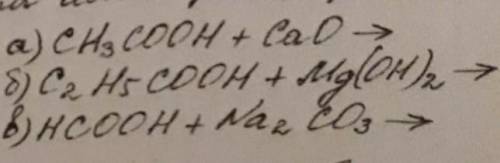 а) CH₃COOH + CaO →
б) C₂H₅COOH + Mg(OH)₂ →
в) HCOOH + Na₂CO₃ →